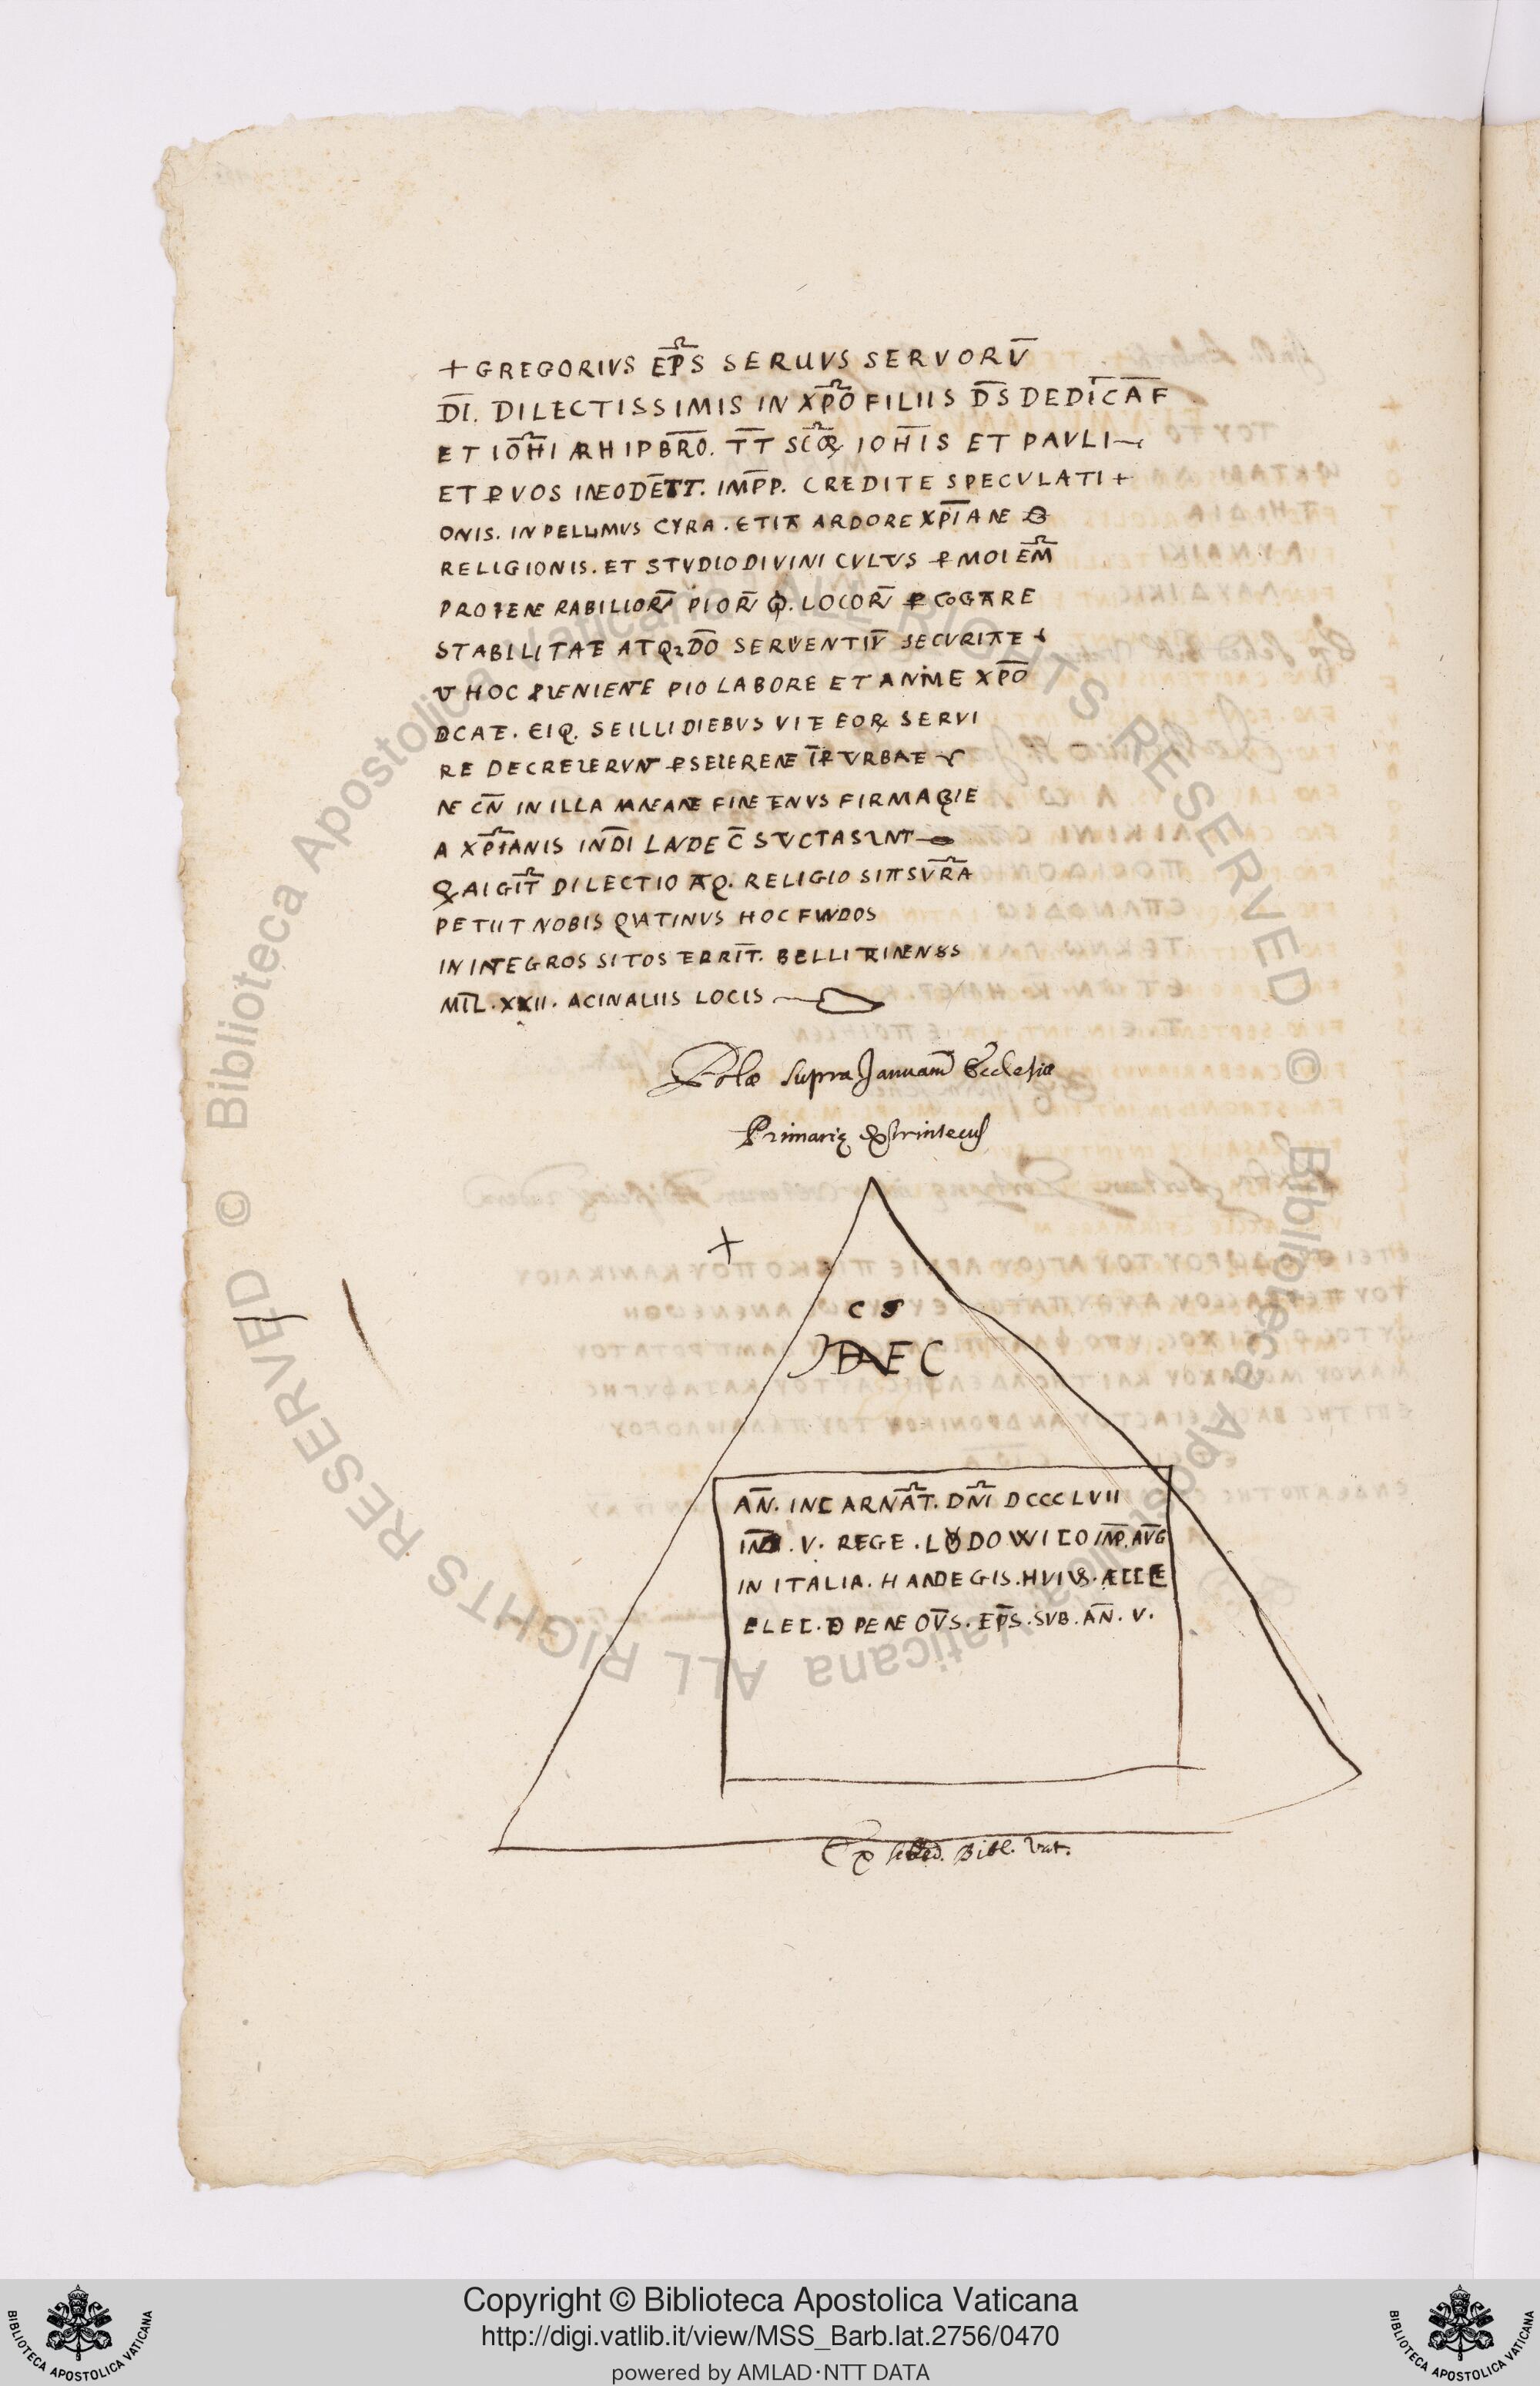 + GREGORIVS EP̅S SERUVS SERVORV̅
D̅I. DILECTISSIMIS IN XP̅O FILIIS D̅S DEDI̅CA̅F
ET IO̅H̅I ARHIPB̅R̅O. T̅T SC̅OR IOH̅IS ET PAVLI
ET P VOS INEODE̅TT. IMP̅P. CREDITE SPECVLATI +
ONIS. INPELLIMVS CYRA. ETIA̅ ARDORE XP̅I̅ANE
RELIGIONIS. ET STVDIO DIVINI CVLTVS P MOI EM̅
PROFENE RABILIOR̅ PIOR̅ Q̅. LOCOR̅ P COGTARE
STABILITAE ATQ2 D̅O SERVENTIV̅ SECVRITAE
V HOC PVENIENE PIO LABORE ET ANIME XP̅O
DCAE. EIQ. SEILLI DIEBVS VITE EOR SERVI
RE DECREVERVNT P SEVERENE I̅P VRBAE
NE CN̅ IN ILLA MANEANE FINE TENVS FIRMA QIE
A XP̅I̅ANIS IND̅I LAVDE C̅ SVCTA SVNT
Q AIGI̅T̅ DILECTIO A̅Q. RELIGIO SITSV̅R̅A
PETIIT NOBIS QVATINVS HOC FVNDOS
IN INTEGROS SITOS TERRI̅T. BELLITRINENSIS
MI̅L. XXII. ACINALIIS LOCIS
Polæ supra Januam̅ Ecclesiæ
Primarię extrinsecus
+
CS
DEC
AN̅. INCARNA̅T. DN̅I DCCCLVII
IND. V. REGE. LVDOWICO IN̅P. AV̅G
IN ITALIA. HANDEGIS. HVIVS. ÆCCE
ELEC. D PENE OV̅S. EP̅S. SVB. AN̅. V.
Ex sched. Bibl. Vat.
Copyright © Biblioteca Apostolica Vaticana
http://digi.vatlib.it/view/MSS_Barb.lat.2756/0470
powered by AMLAD·NTT DATA
BIBLIOTECA APOSTOLICA VATICANA
BIBLIOTECA APOSTOLICA VATICANA
Biblioteca Apostolica Vaticana ALL RIGHTS RESERVED ©
Biblioteca Apostolica Vaticana ALL RIGHTS RESERVED ©